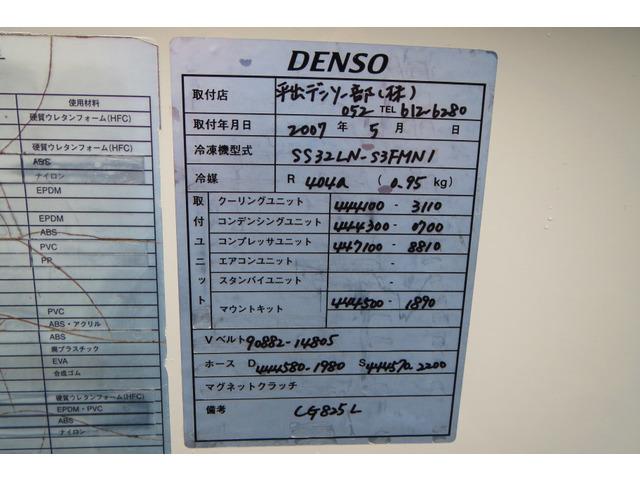 使用材料
硬質ウレタンフォーム(HFC)
硬質ウレタンフォーム(HFC)
ABS
ナイロン
EPDM
EPDM
ABS
PVC
PP
PVC
ABS・アクリル
ABS
廃プラスチック
EVA
合成ゴム
硬質ウレタンフォーム(HFC)
EPDM・PVC
ABS
ナイロン
DENSO
取付店 平出デンソー (株)
052 TEL 612-6280
取付年月日 2007 年 5 月 日
冷凍機型式 SS32LN-S3FMN1
冷媒 R 404a ( 0.95 kg)
取付ユニット
クーリングユニット 444100 - 3110
コンデンシングユニット 444300 - 0700
コンプレッサユニット 447100 - 8810
エアコンユニット -
スタンバイユニット -
マウントキット 444500 - 1890
Vベルト 90882-14805
ホース D 444580-1980 S 444570-2200
マグネットクラッチ
備考 LG825L